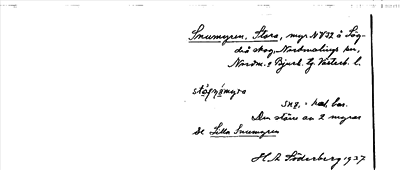 Snumyren, Stora, myr NV32 å Läg-
diå skog, Nordmalings sn,
Nordm. o Bjurh. tg Västerb. l.
sng. best.
Den större av 2 myrar
Se Lilla Snumyren
H. A. Söderberg 1937